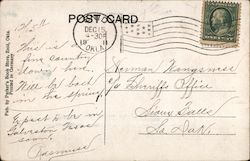 POST CARD
DEC 15
4-30P
OKLA.
This is a
fine country
down here.
Will be back
in the spring.
Expect to be in
Galveston Texas
soon.
Rasmus
Herman Kongsness
c/o Sheriffs Office
Sioux Falls
So. Dak.
Pub. by Parker's Book Store, Enid, Okla.